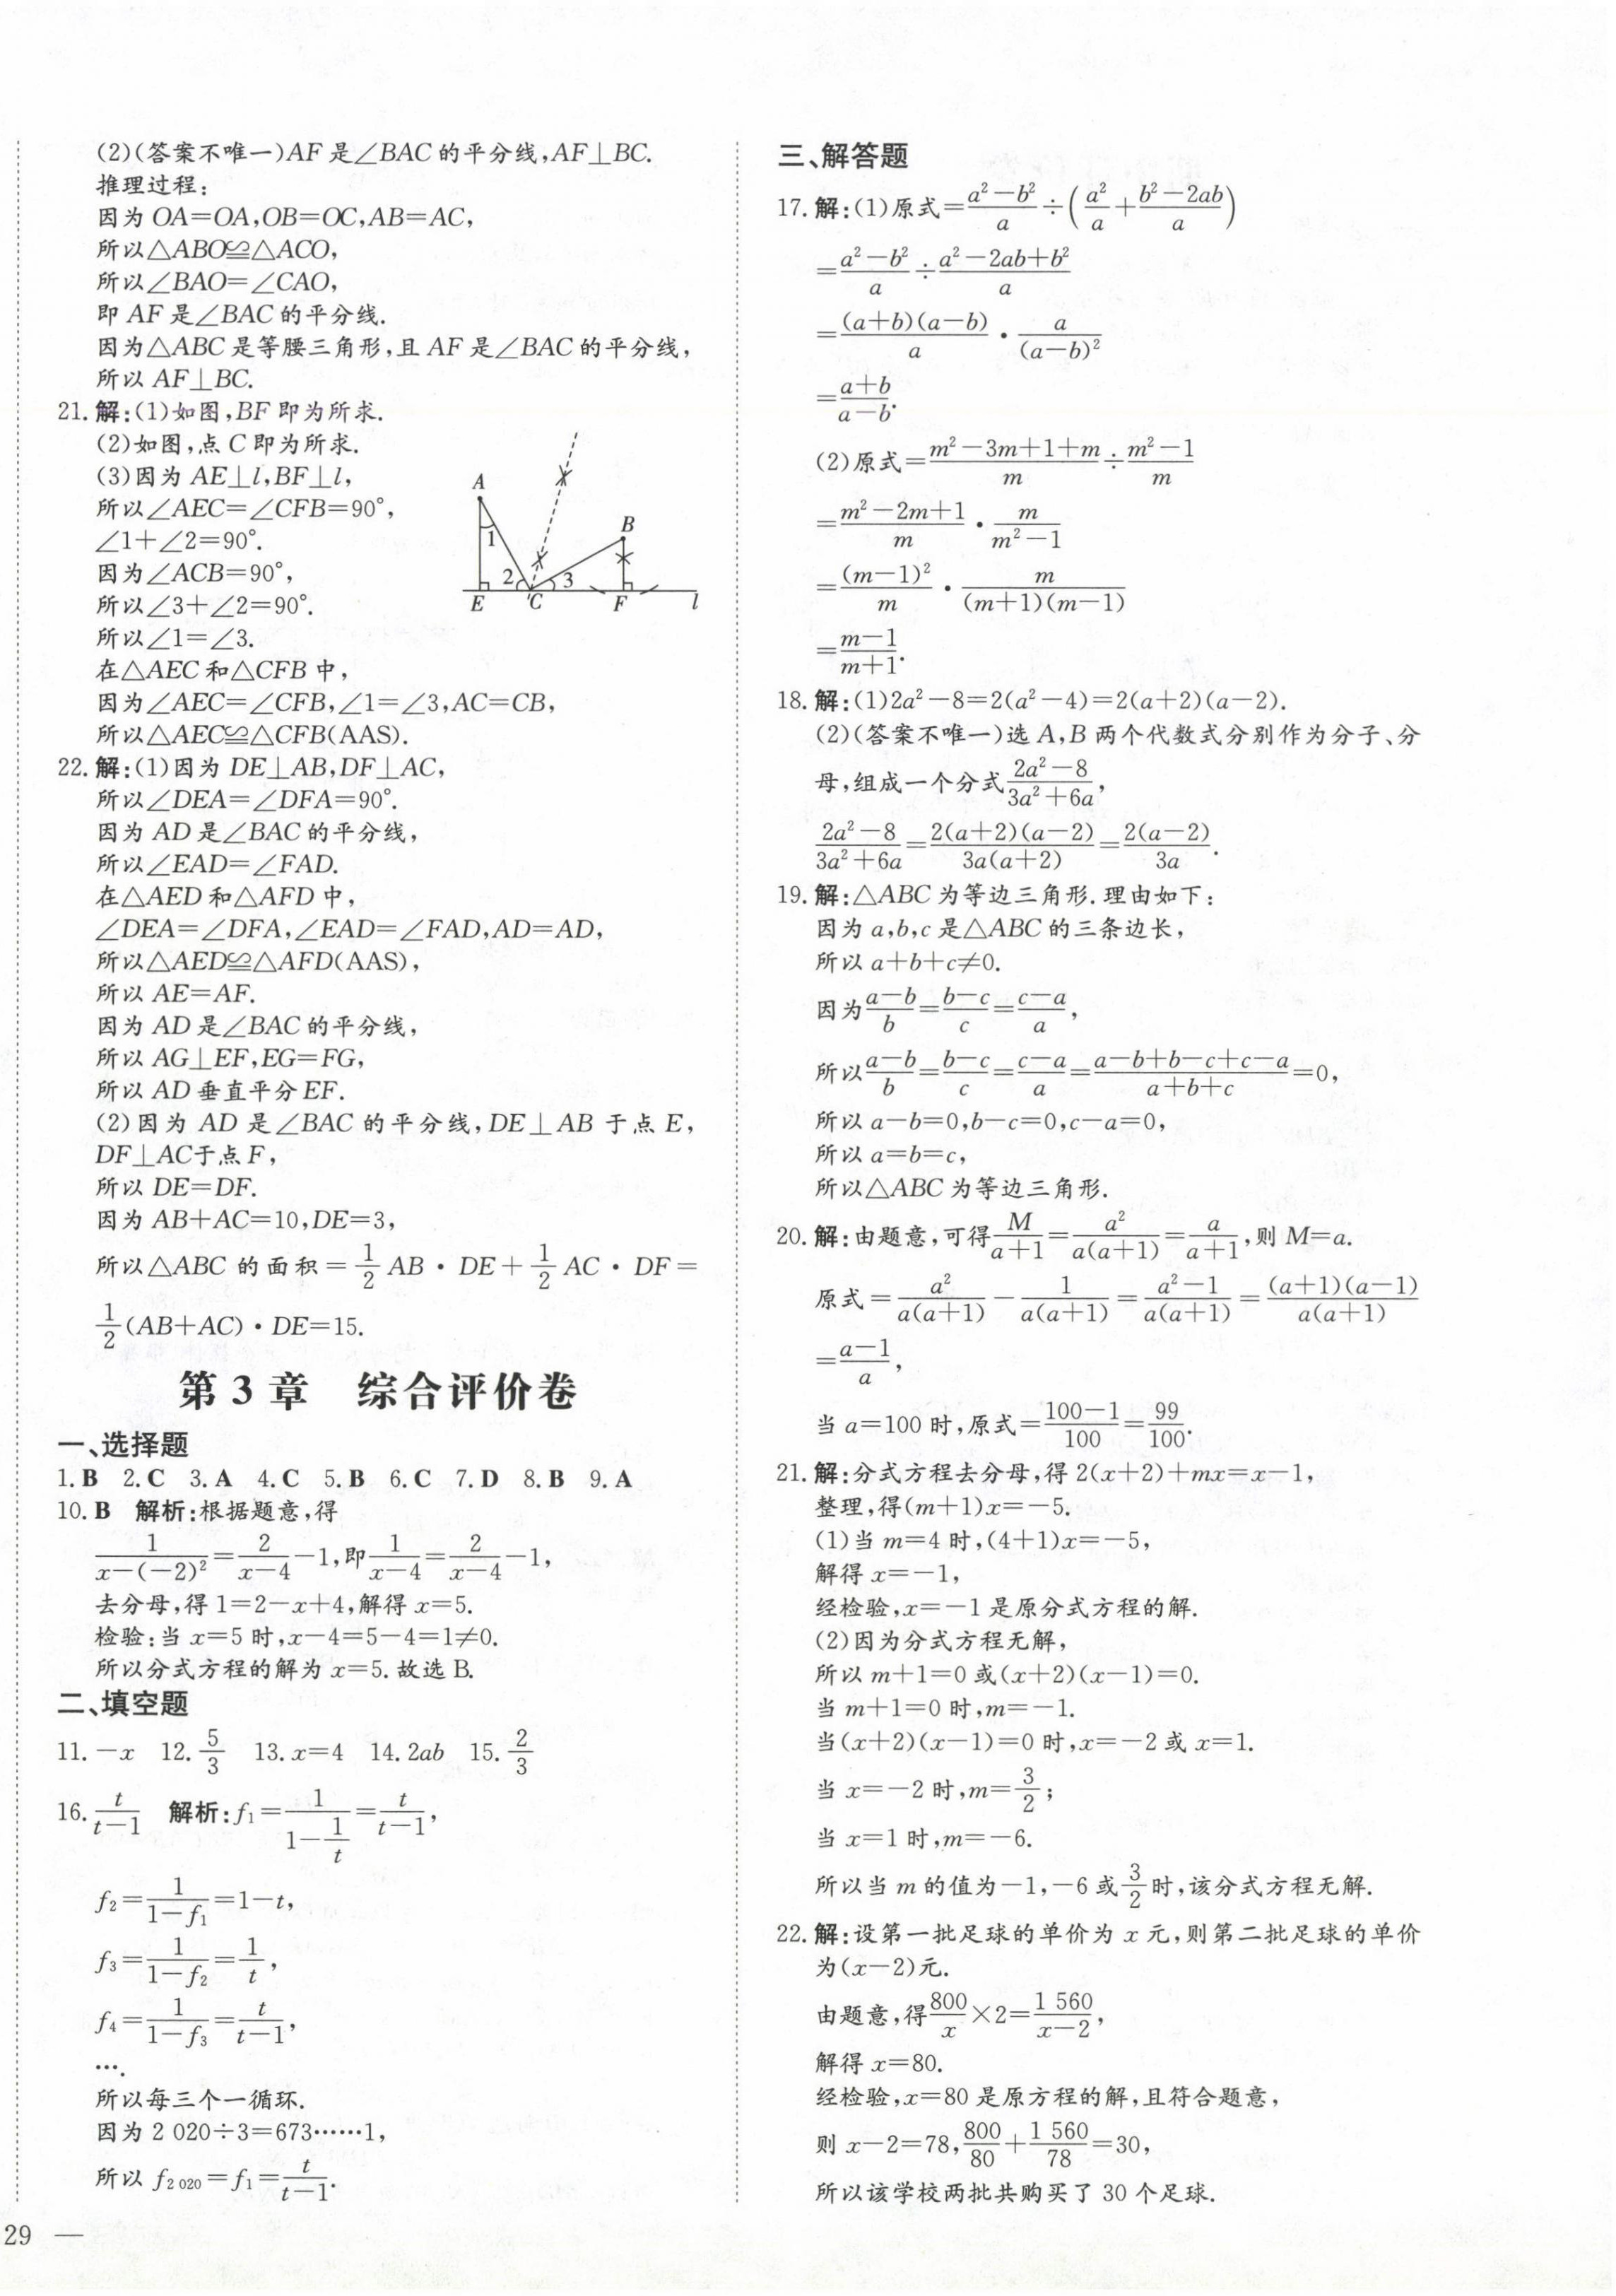 (2)(答案不唯一)AF是∠BAC的平分线,AF⊥BC.
推理过程:
因为OA=OA,OB=OC,AB=AC,
所以△ABO≌△ACO,
所以∠BAO=∠CAO,
即AF是∠BAC的平分线.
因为△ABC是等腰三角形,且AF是∠BAC的平分线,
所以AF⊥BC.
21.解:(1)如图,BF即为所求.
(2)如图,点C即为所求.
(3)因为AE⊥l,BF⊥l,
所以∠AEC=∠CFB=90°,
∠1+∠2=90°.
因为∠ACB=90°,
所以∠3+∠2=90°.
所以∠1=∠3.
A
B
1
2
3
E
C
F
l
在△AEC和△CFB中,
因为∠AEC=∠CFB,∠1=∠3,AC=CB,
所以△AEC≌△CFB(AAS).
22.解:(1)因为DE⊥AB,DF⊥AC,
所以∠DEA=∠DFA=90°.
因为AD是∠BAC的平分线,
所以∠EAD=∠FAD.
在△AED和△AFD中,
∠DEA=∠DFA,∠EAD=∠FAD,AD=AD,
所以△AED≌△AFD(AAS),
所以AE=AF.
因为AD是∠BAC的平分线,
所以AG⊥EF,EG=FG,
所以AD垂直平分EF.
(2)因为AD是∠BAC的平分线,DE⊥AB于点E,
DF⊥AC于点F,
所以DE=DF.
因为AB+AC=10,DE=3,
所以△ABC的面积=1/2 AB·DE+1/2 AC·DF=
1/2(AB+AC)·DE=15.
第3章 综合评价卷
一、选择题
1.B 2.C 3.A 4.C 5.B 6.C 7.D 8.B 9.A
10.B 解析:根据题意,得
1/(x-(-2)²)=2/(x-4)-1,即1/(x-4)=2/(x-4)-1,
去分母,得1=2-x+4,解得x=5.
检验:当x=5时,x-4=5-4=1≠0.
所以分式方程的解为x=5.故选B.
二、填空题
11.-x 12.5/3 13.x=4 14.2ab 15.2/3
16.t/(t-1) 解析:f₁=1/(1-1/t)=t/(t-1),
f₂=1/(1-f₁)=1-t,
f₃=1/(1-f₂)=1/t,
f₄=1/(1-f₃)=t/(t-1),
….
所以每三个一循环.
因为2 020÷3=673……1,
所以f₂ ₀₂₀=f₁=t/(t-1).
29 —
三、解答题
17.解:(1)原式=(a²-b²)/a÷(a²/a+(b²-2ab)/a)
=(a²-b²)/a÷(a²-2ab+b²)/a
=(a+b)(a-b)/a·a/(a-b)²
=(a+b)/(a-b).
(2)原式=(m²-3m+1+m)/m÷(m²-1)/m
=(m²-2m+1)/m·m/(m²-1)
=(m-1)²/m·m/((m+1)(m-1))
=(m-1)/(m+1).
18.解:(1)2a²-8=2(a²-4)=2(a+2)(a-2).
(2)(答案不唯一)选A,B两个代数式分别作为分子、分
母,组成一个分式(2a²-8)/(3a²+6a),
(2a²-8)/(3a²+6a)=2(a+2)(a-2)/(3a(a+2))=2(a-2)/(3a).
19.解:△ABC为等边三角形.理由如下:
因为a,b,c是△ABC的三条边长,
所以a+b+c≠0.
因为(a-b)/b=(b-c)/c=(c-a)/a,
所以(a-b)/b=(b-c)/c=(c-a)/a=(a-b+b-c+c-a)/(a+b+c)=0,
所以a-b=0,b-c=0,c-a=0,
所以a=b=c,
所以△ABC为等边三角形.
20.解:由题意,可得M/(a+1)=a²/(a(a+1))=a/(a+1),则M=a.
原式=a²/(a(a+1))-1/(a(a+1))=(a²-1)/(a(a+1))=(a+1)(a-1)/(a(a+1))
=(a-1)/a,
当a=100时,原式=(100-1)/100=99/100.
21.解:分式方程去分母,得2(x+2)+mx=x-1,
整理,得(m+1)x=-5.
(1)当m=4时,(4+1)x=-5,
解得x=-1,
经检验,x=-1是原分式方程的解.
(2)因为分式方程无解,
所以m+1=0或(x+2)(x-1)=0.
当m+1=0时,m=-1.
当(x+2)(x-1)=0时,x=-2或x=1.
当x=-2时,m=3/2;
当x=1时,m=-6.
所以当m的值为-1,-6或3/2时,该分式方程无解.
22.解:设第一批足球的单价为x元,则第二批足球的单价
为(x-2)元.
由题意,得800/x×2=1 560/(x-2),
解得x=80.
经检验,x=80是原方程的解,且符合题意,
则x-2=78,800/80+1 560/78=30,
所以该学校两批共购买了30个足球.